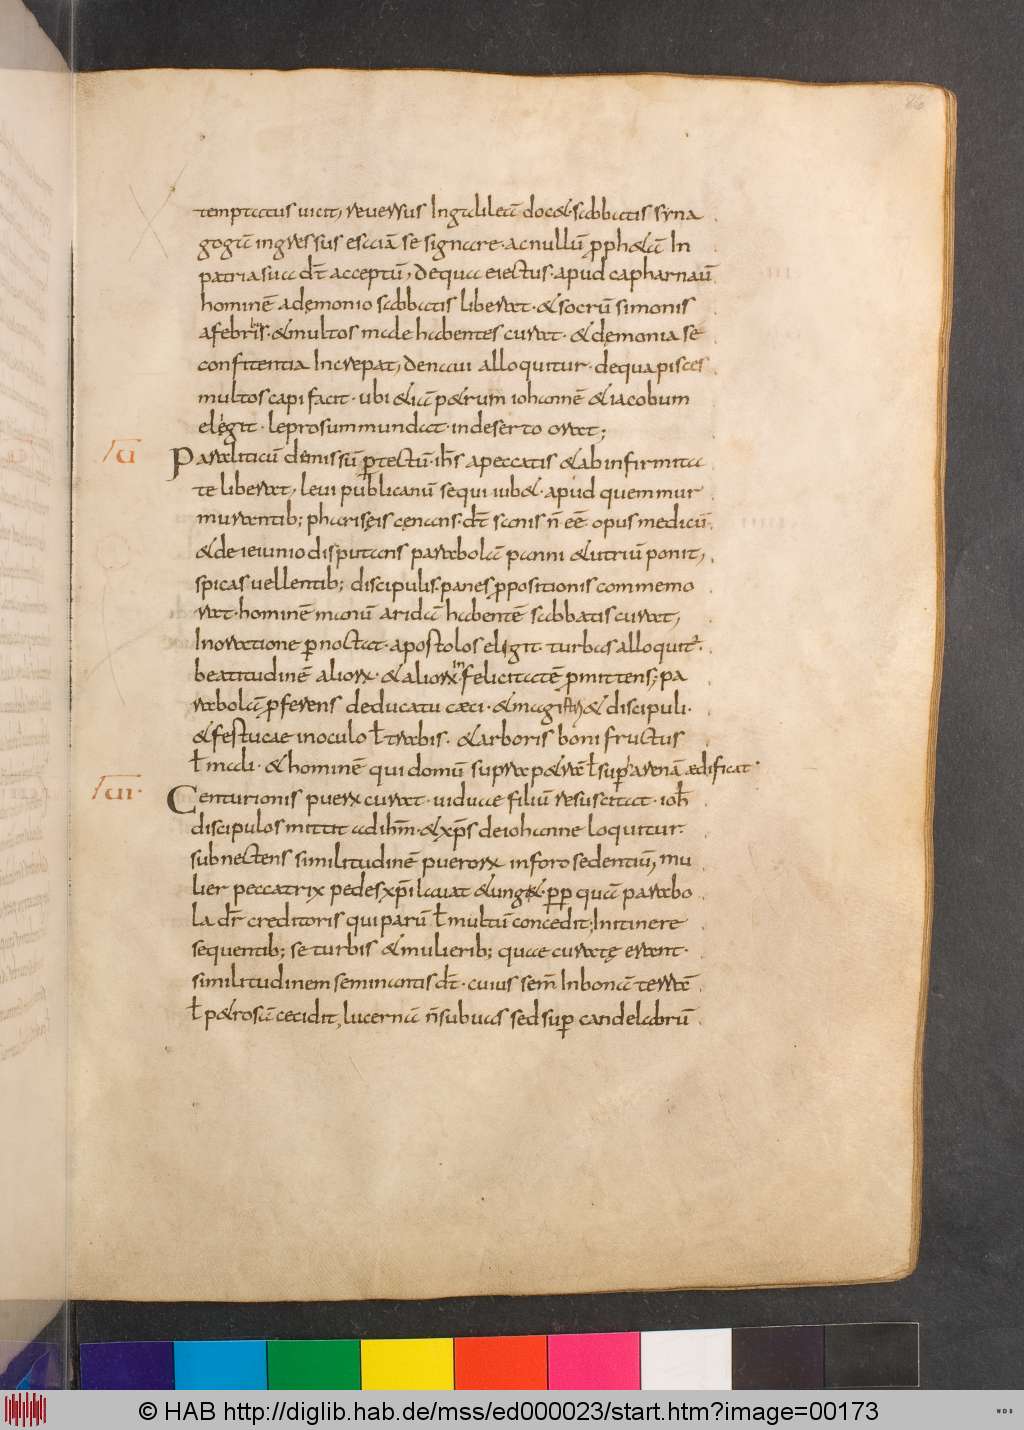 temptatus uicit, reuersus Ingalileā docet· sabbatis syna
gogā ingressus esaiā se signare· ac nullū ꝓphetā In
patria sua dr̄ acceptū, de qua eiectus· apud capharnaū
hominē ademonio sabbatis liberat· et socrū simonis
afebris· et multos male habentes curat· et demonia se
confitentia Increpat, denaui alloquitur· de qua pisces
multos capi facit· ubi etiā petrum iohannē et iacobum
elegit· leprosum mundat· in deserto orat;
V
Paraliticū demissū ꝑ tectū· ih̄s apeccatis et ab infirmita
te liberat, leui publicanū sequi iubet· apud quem mur
murantib; phariseis cenans· dt̄ sanis n̄ eē opus medicū·
et de ieiunio disputans parabolā panni et utriū ponit,
spicas uellentib; discipulis· panes ꝓpositionis commemo
rat· hominē manū aridā habentē sabbatis curat,
In oratione ꝑnoctat· apostolos eligit· turbas alloquit̄·
beatitudinē aliorꝝ· et aliorꝝ Infelicitatē ꝓmittens; pa
rabolā ꝓferens de ducatu cæci· et magistri et discipuli·
et festucae inoculo ł trabis· et arboris boni fructus
ł mali· et hominē qui domū supra petrā ł suꝑ arenā ædificat·
VI·
Centurionis puerꝝ curat· uiduae filiū resuscitat· ioh̄
discipulos mittit ad ihm̄· et xp̄s de iohanne loquitur·
subnectens similitudinē puerorꝝ in foro sedentiū, mu
lier peccatrix pedes xp̄i lauat et unget· ꝓp quā parabo
la dr̄ creditoris qui parū ł multū concedit; In itinere
sequentib; se turbis et mulierib; quae curate erant·
similitudinem seminantis dt̄· cuius sem̄ In bonā terrā
ł petrosā cecidit, lucernā n̄ sub uas sed suꝑ candelabrū
© HAB http://diglib.hab.de/mss/ed000023/start.htm?image=00173